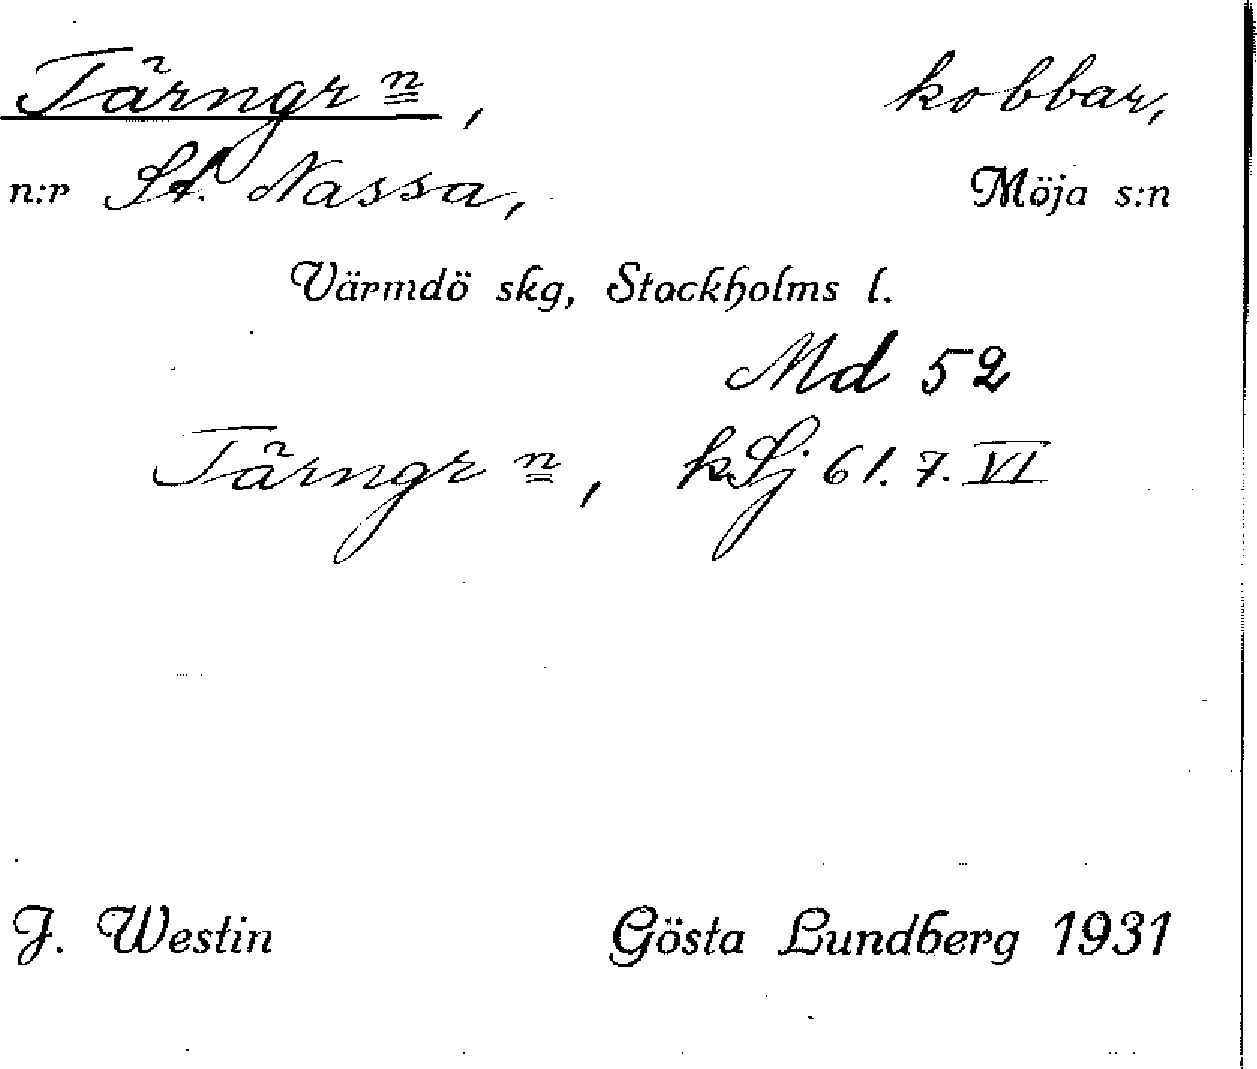 Tärngr n, kobbar,
n:r St. Nassa, Möja s:n
Värmdö skg, Stockholms l.
Md 52
Tärngr n, kSj 61.7.VI
J. Westin Gösta Lundberg 1931